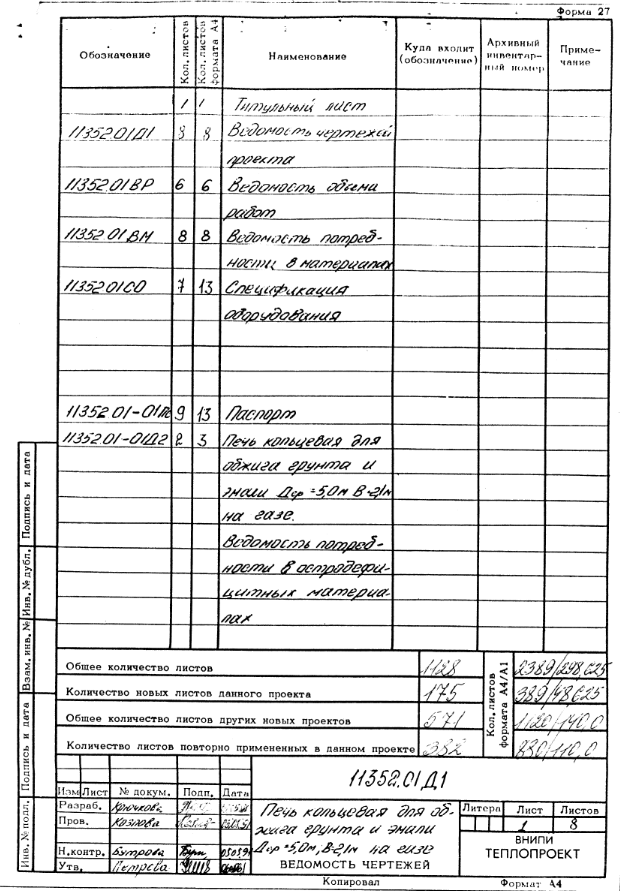 Форма 27
Обозначение Кол. листов Кол. листов формата А4 Наименование Куда входит (обозначение) Архивный инвентарный номер Примечание
1 1 Титульный лист
11352.01Д1 8 8 Ведомость чертежей
проекта
11352.01ВР 6 6 Ведомость объема
работ
11352.01ВМ 8 8 Ведомость потреб-
ности в материалах
11352.01СО 7 13 Спецификация
оборудования
11352.01-01ПС 9 13 Паспорт
11352.01-01Д2 2 3 Печь кольцевая для
обжига грунта и
эмали Дср=5,0м В=2,1м
на газе.
Ведомость потреб-
ности в остродефи-
цитных материа-
лах
Общее количество листов 1128 2389/298,625
Количество новых листов данного проекта 175 389/48,625
Общее количество листов других новых проектов 571 1120/140,0
Количество листов повторно примененных в данном проекте 382 880/110,0
Кол. листов формата А4/А1
Подпись и дата
Инв. № дубл.
Взам. инв. №
Подпись и дата
Инв. № подл.
11352.01Д1
Изм Лист № докум. Подп. Дата
Разраб. Крючкова
Пров. Козлова
Н.контр. Бутрова
Утв. Петрова
Печь кольцевая для об-
жига грунта и эмали
Дср=5,0м, В=2,1м на газе
ВЕДОМОСТЬ ЧЕРТЕЖЕЙ
Литера Лист Листов
1 8
ВНИПИ
ТЕПЛОПРОЕКТ
Копировал Формат А4